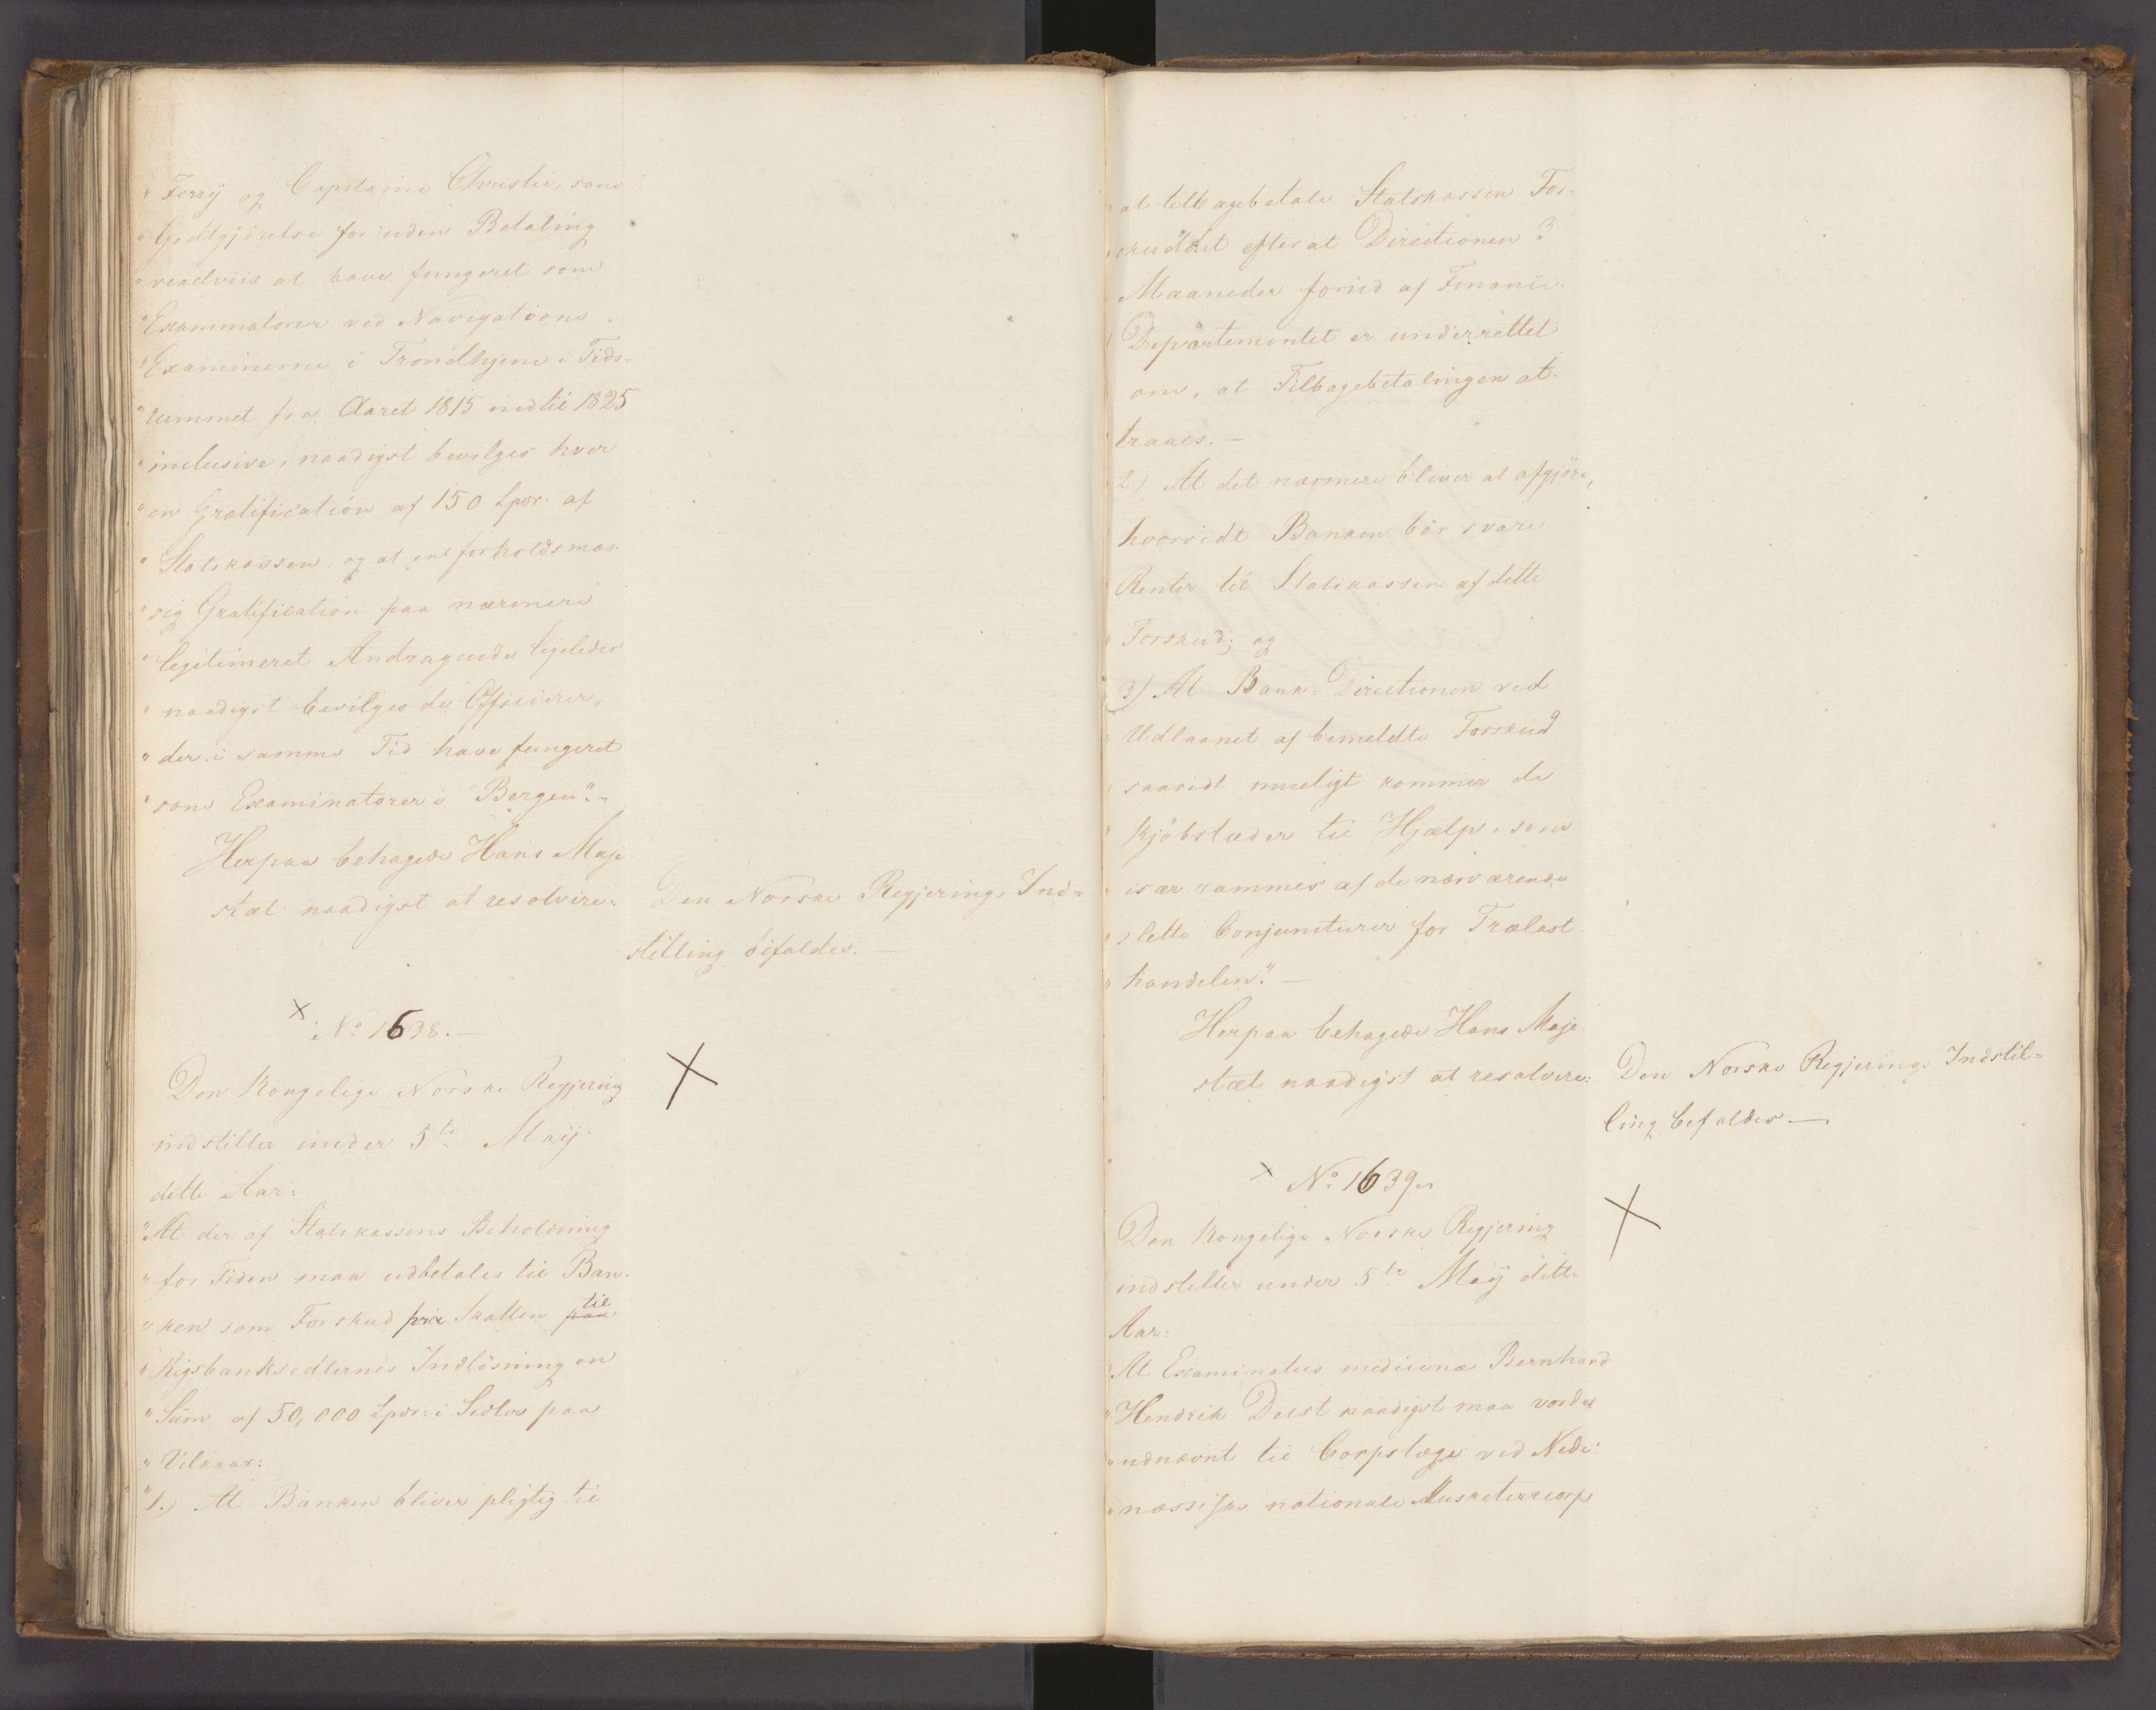 " Ferrÿ og Capitaine Christie, som
" Godtgjörelse for uden Betaling
" vexelviis at have fungeret som
" Examinatorer ved Navigations
" Examinerne i Trondhjem i Tids-
" rummet fra Aaret 1815 indtil 1825
" inclusive, naadigst bevilges hver
" en Gratification af 150 Spdr. af
" Statskassen, og at en forholdsmæs-
" sig Gratification paa nærmere
" legitimeret Andragende ligeledes
" naadigst bevilges de Officierer,
" der i samme Tid have fungeret
" som Examinatorer i Bergen". -
Herpaa behagede Hans Maje
stæt naadigst at resolvere:
Den Norske Regjerings Ind=
stilling bifaldes. —
x
No 1638. —
Den Kongelige Norske Regjering
indstiller under 5te Maij
dette Aar:
" At der af Statskassens Beholdning
" for Tiden maa udbetales til Ban-
" ken som Forskud paa Skatten paa til
" Rigsbanksedlernes Indlösning en
" Sum af 50,000 Spdr. i Sedler paa
" Vilkaar:
" 1.) At Banken bliver pligtig til
" at tilbagebetale Statskassen For-
" skuddet efterat Directionen 3
" Maaneder forud af Finants-
" Departementet er underrettet
" om, at Tilbagebetalingen at-
" traaes. —
" 2.) At det nærmere bliver at afgjöre,
" hvorvidt Banken bör svare
" Renter til Statskassen af dette
" Forskud; og
" 3) At Bank-Directionen ved
" Udlaanet af bemeldte Forskud
" saavidt mueligt kommer de
" Kjöbstæder til Hjælp, som
" især rammes af de nærværende
" slette Conjuncturer for Trælast
" handelen". —
Herpaa behagede Hans Maje
stæt naadigst at resolvere:
Den Norske Regjerings Indstil=
ling bifaldes —
x No 1639.
Den Kongelige Norske Regjering
indstiller under 5te Maij dette
Aar:
" At Examinatus medicinæ Bernhard
" Hendrik Deist naadigst maa vorde
" udnævnt til Corpslæge ved Nede-
" næssiske nationale Musketeercorps